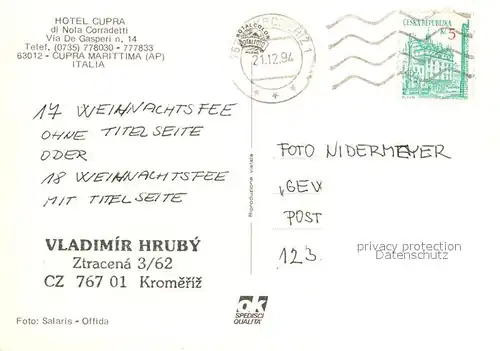 HOTEL CUPRA
di Nola Corradetti
Via De Gasperi n. 14
Telef. (0735) 778030 - 777833
63012 - CUPRA MARITTIMA (AP)
ITALIA
ČESKÁ REPUBLIKA
Kč 5
21.12.94
17 WEIHNACHTSFEE
OHNE TITELSEITE
ODER
18 WEIHNACHTSFEE
MIT TITELSEITE
FOTO NIDERMEYER
"GEW
POST
123
VLADIMÍR HRUBÝ
Ztracená 3/62
CZ 767 01 Kroměříž
Riproduzione vietata
privacy protection
Datenschutz
ok
SPEDISCI
QUALITA'
Foto: Salaris - Offida